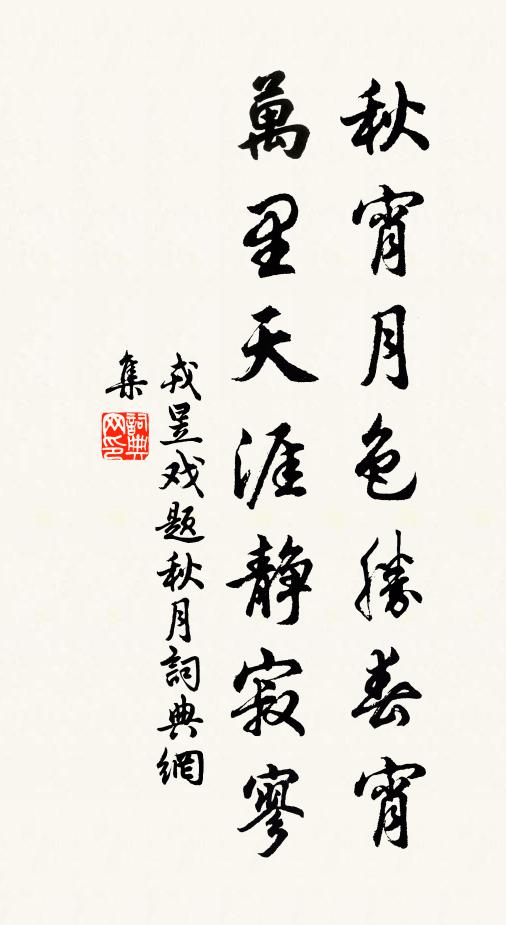 秋宵月色勝春宵
萬里天涯静寂寥
戎昱戏题秋月詞典網
集
詞典
网印